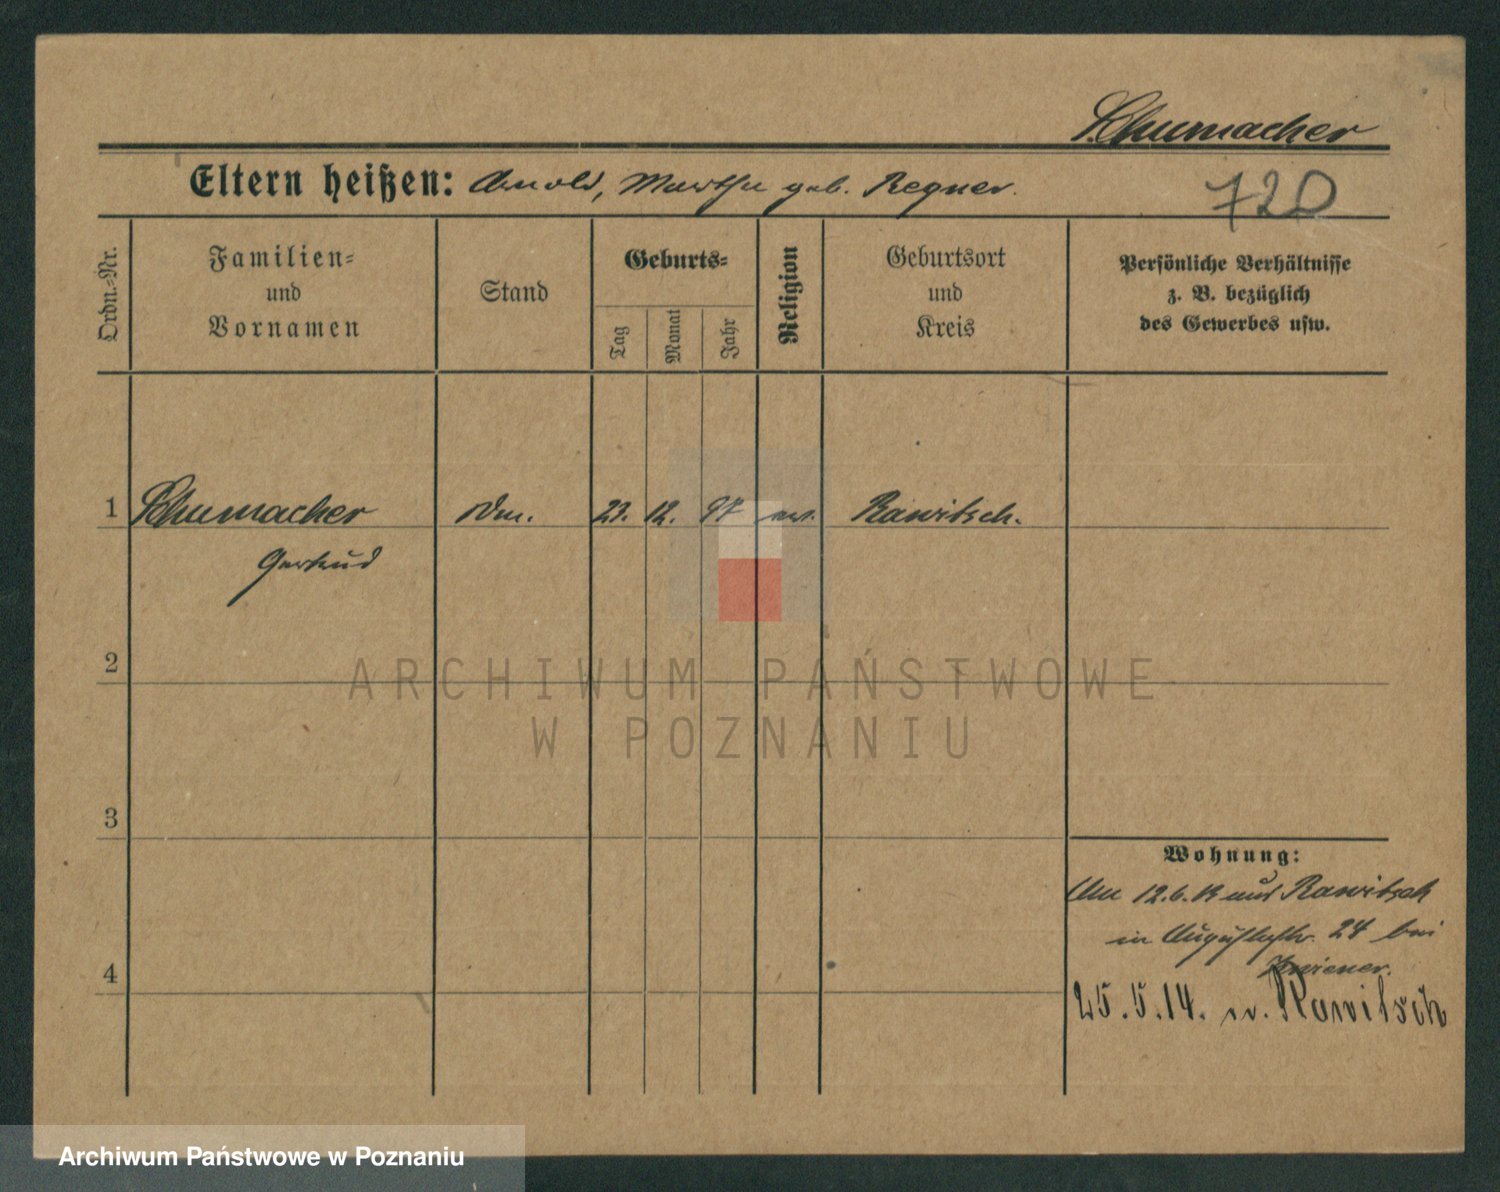 Schumacher
Eltern heißen: Arnold, Martha geb. Regner.
720
Ordn.-Nr.
Familien-
und
Vornamen
Stand
Geburts-
Tag
Monat
Jahr
Religion
Geburtsort
und
Kreis
Persönliche Verhältnisse
z. B. bezüglich
des Gewerbes usw.
1 Schumacher 23. 12. 97 Rawitsch.
Gertrud
2
ARCHIWUM PAŃSTWOWE
W POZNANIU
3
Wohnung:
Am 12.6.13 aus Rawitsch
in Augustastr. 24 bei
4
25.5.14. n. Rawitsch
Archiwum Państwowe w Poznaniu